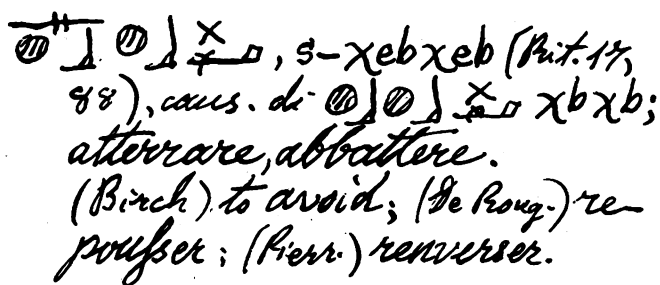 𓊃𓐍𓃀𓐍𓃀, s-χebχeb (Rit. 17,
88), caus. di 𓐍𓃀𓐍𓃀 χbχb;
atterrare, abbattere.
(Birch) to avoid; (De Roug.) re-
pousser; (Pierr.) renverser.